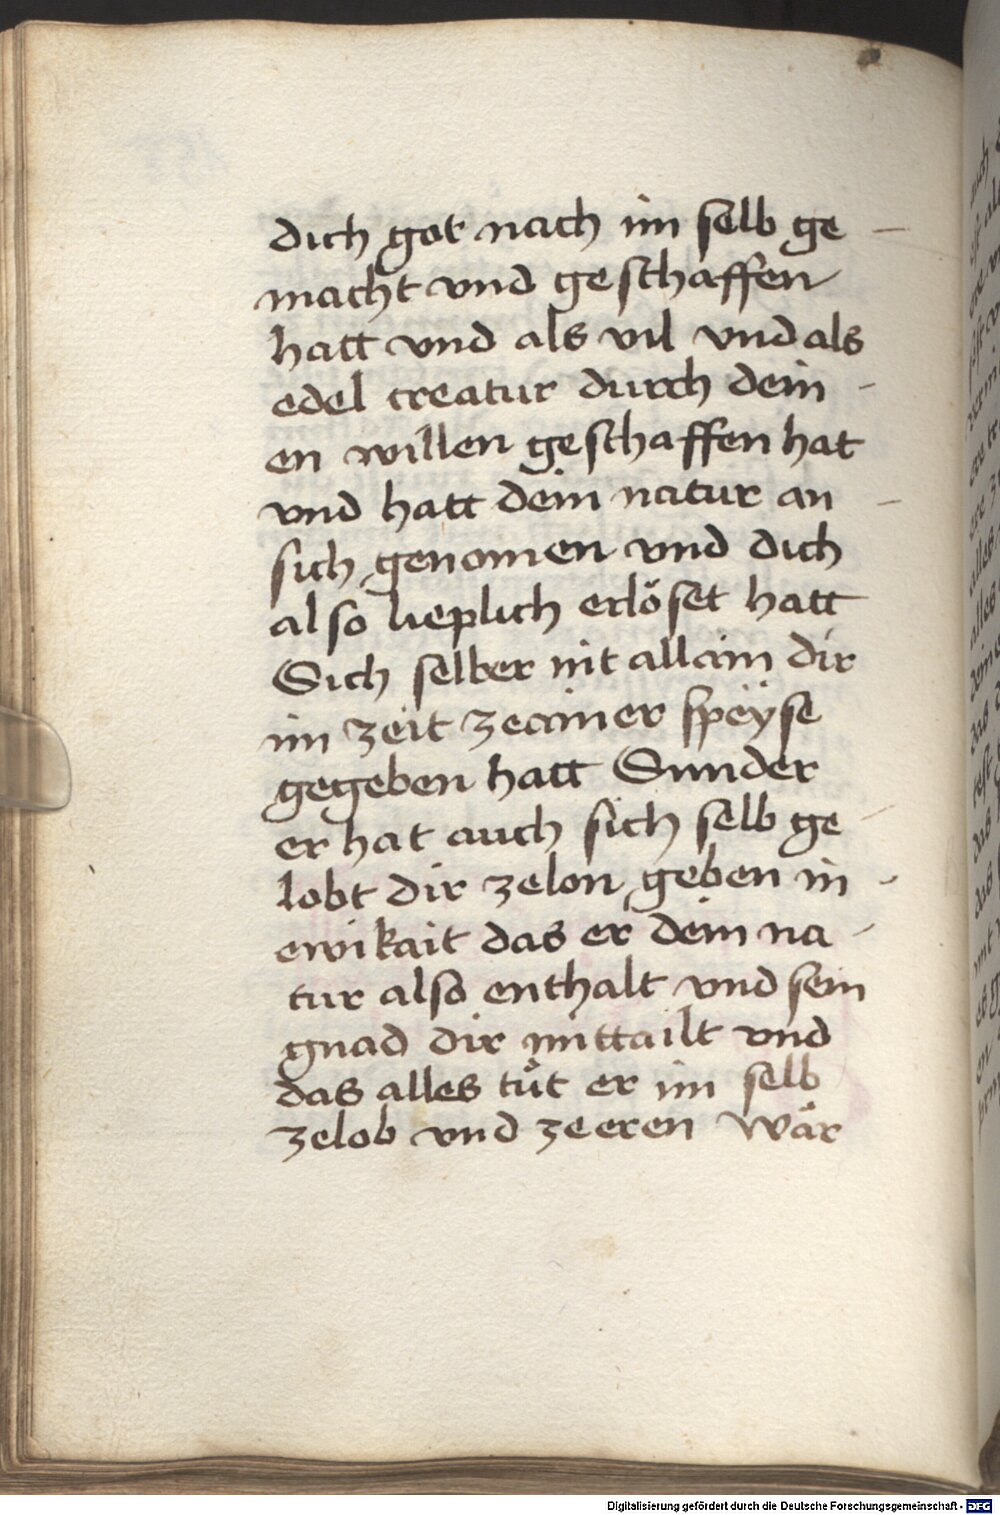 dich got nach im selb ge –
macht vnd geschaffen
hatt vnd als vil vnd als
edel creatur durch dein -
en willen geschaffen hat
vnd hatt dein natur an –
sich genomen vnd dich
also lieplich erlöset hatt
Sich selber nit allain dir
im zeit zeainer speÿse
gegeben hatt Sunder
er hat auch sich selb ge –
lobt dir zelon geben in –
ewikait das er dein na –
tur also enthalt vnd sein
gnad dir mittailt vnd
das alles tůt er im selb
zelob vnd zeeren Wär
Digitalisierung gefördert durch die Deutsche Forschungsgemeinschaft - DFG